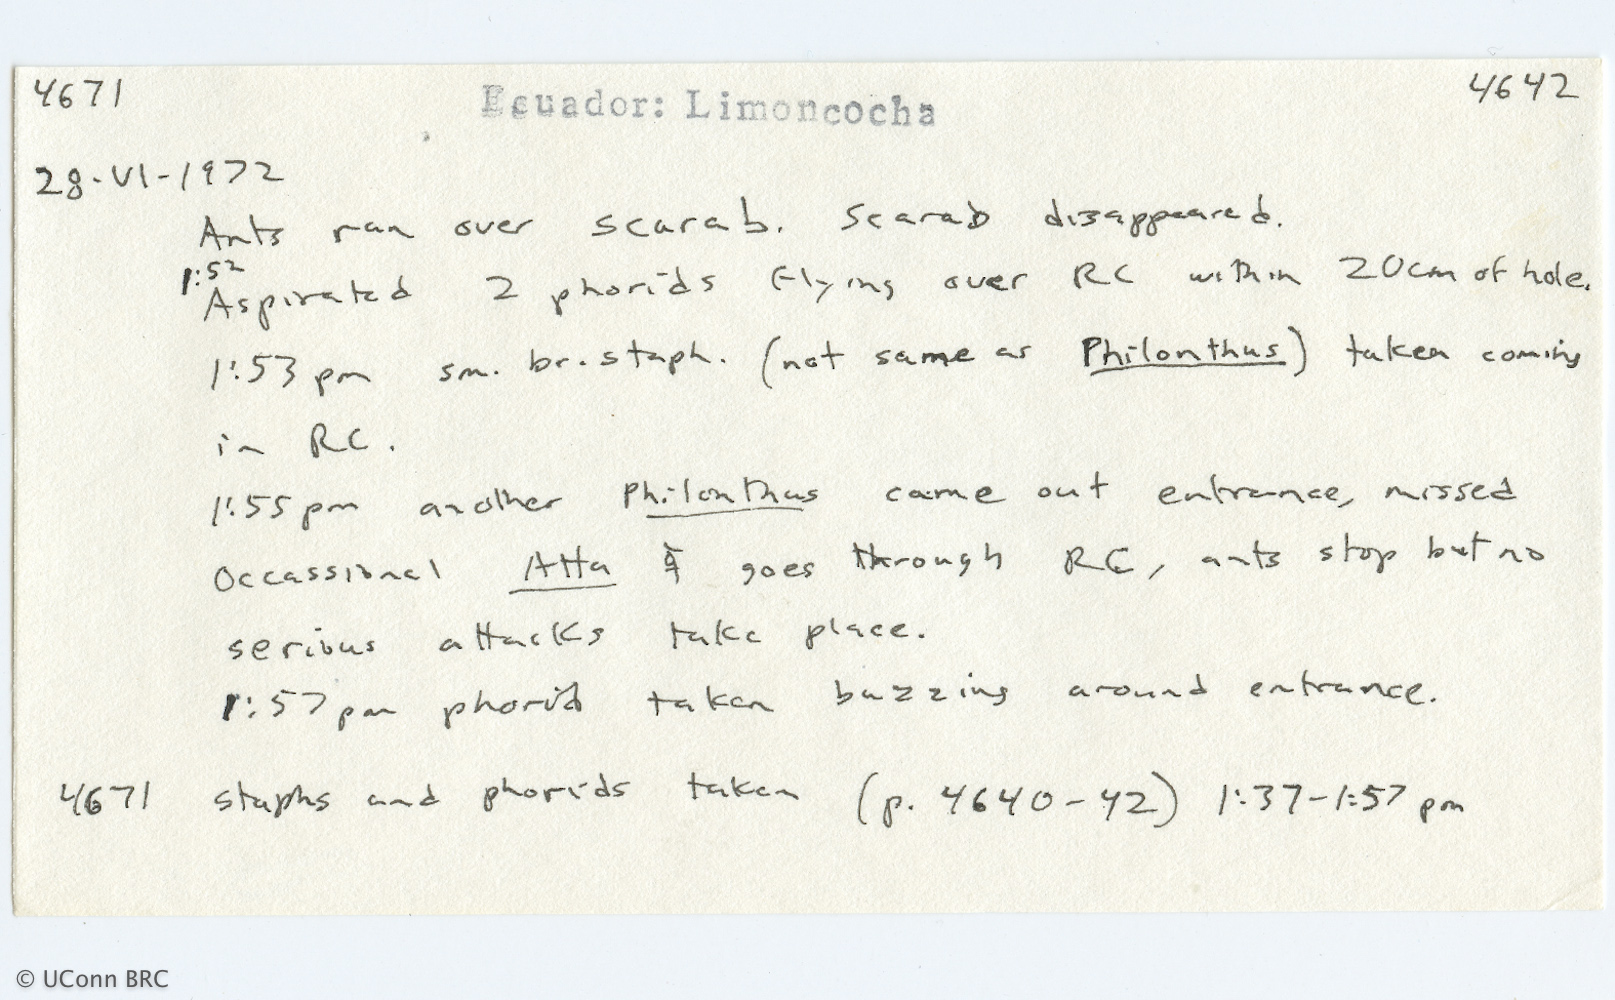 4671 Ecuador: Limoncocha 4642
28-VI-1972
Ants ran over scarab. Scarab disappeared.
1:52
Aspirated 2 phorids flying over RC within 20cm of hole.
1:53 pm sm. br. staph. (not same as Philonthus) taken coming
in RC.
1:55 pm another Philonthus came out entrance, missed
Occassional Atta ☿ goes through RC, ants stop but no
serious attacks take place.
1:57 pm phorid taken buzzing around entrance.
4671 staphs and phorids taken (p. 4640-42) 1:37-1:57 pm
© UConn BRC